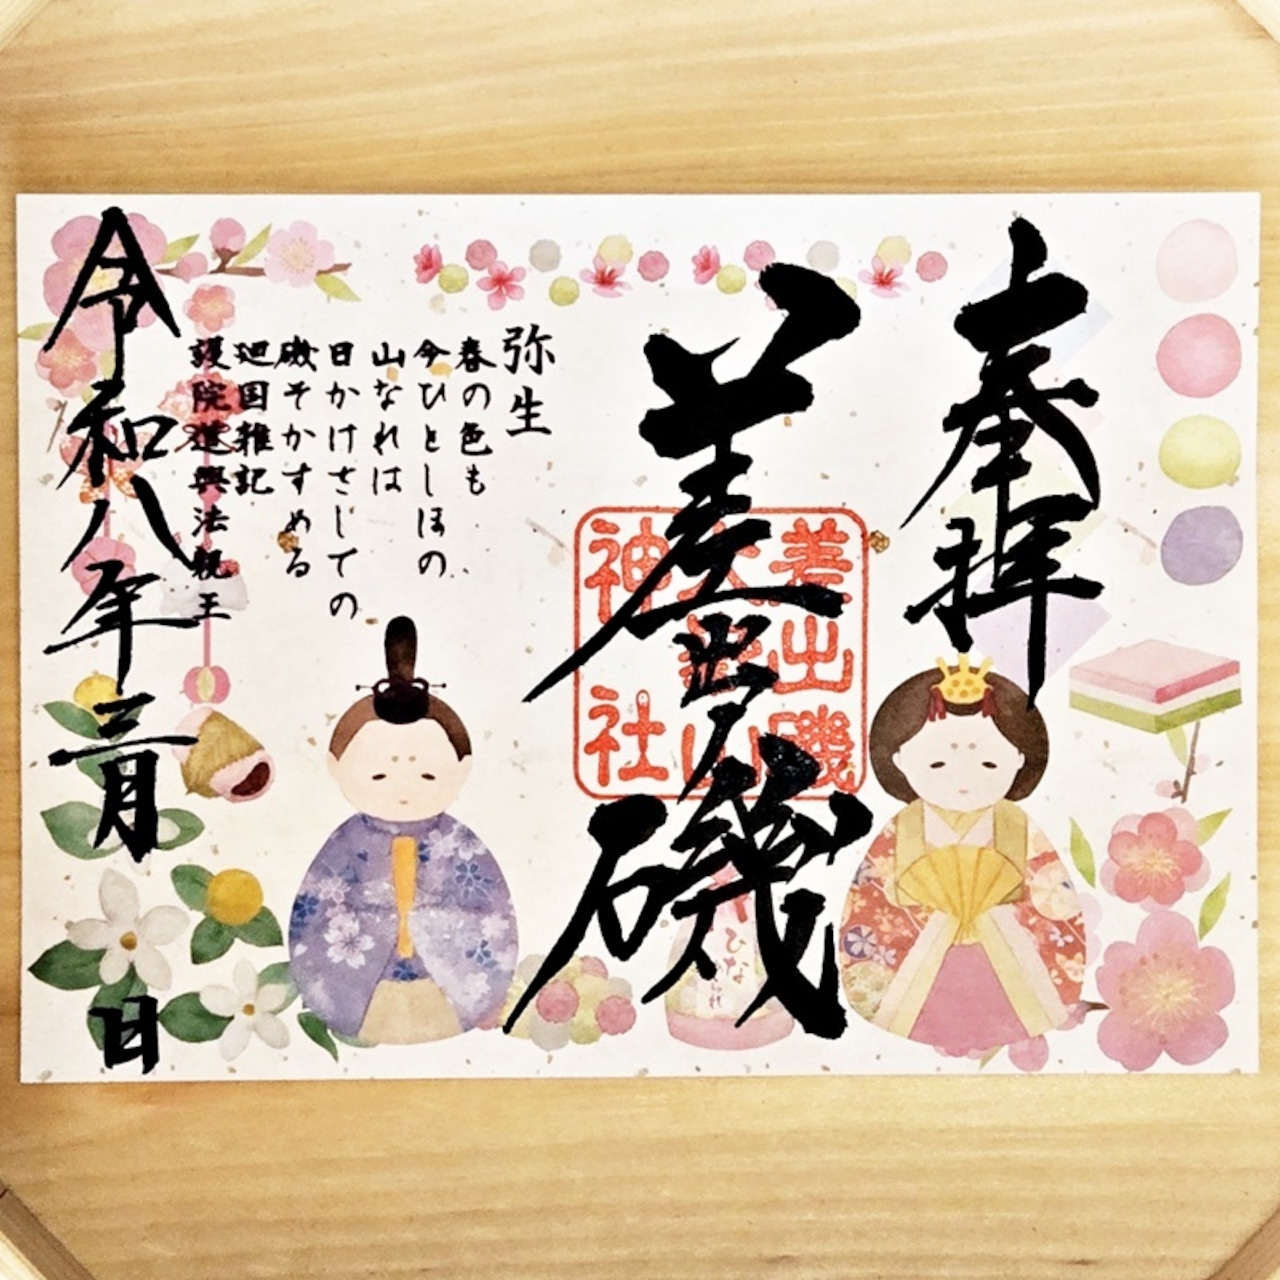 奉拝
差出ノ磯
差出磯
大嶽山
神社
弥生
春の色も
今ひとしほの
山なれは
日かけさしての
磯そかすめる
廻国雑記
護院道興法親王
令和八年三月 日
ひな
あられ